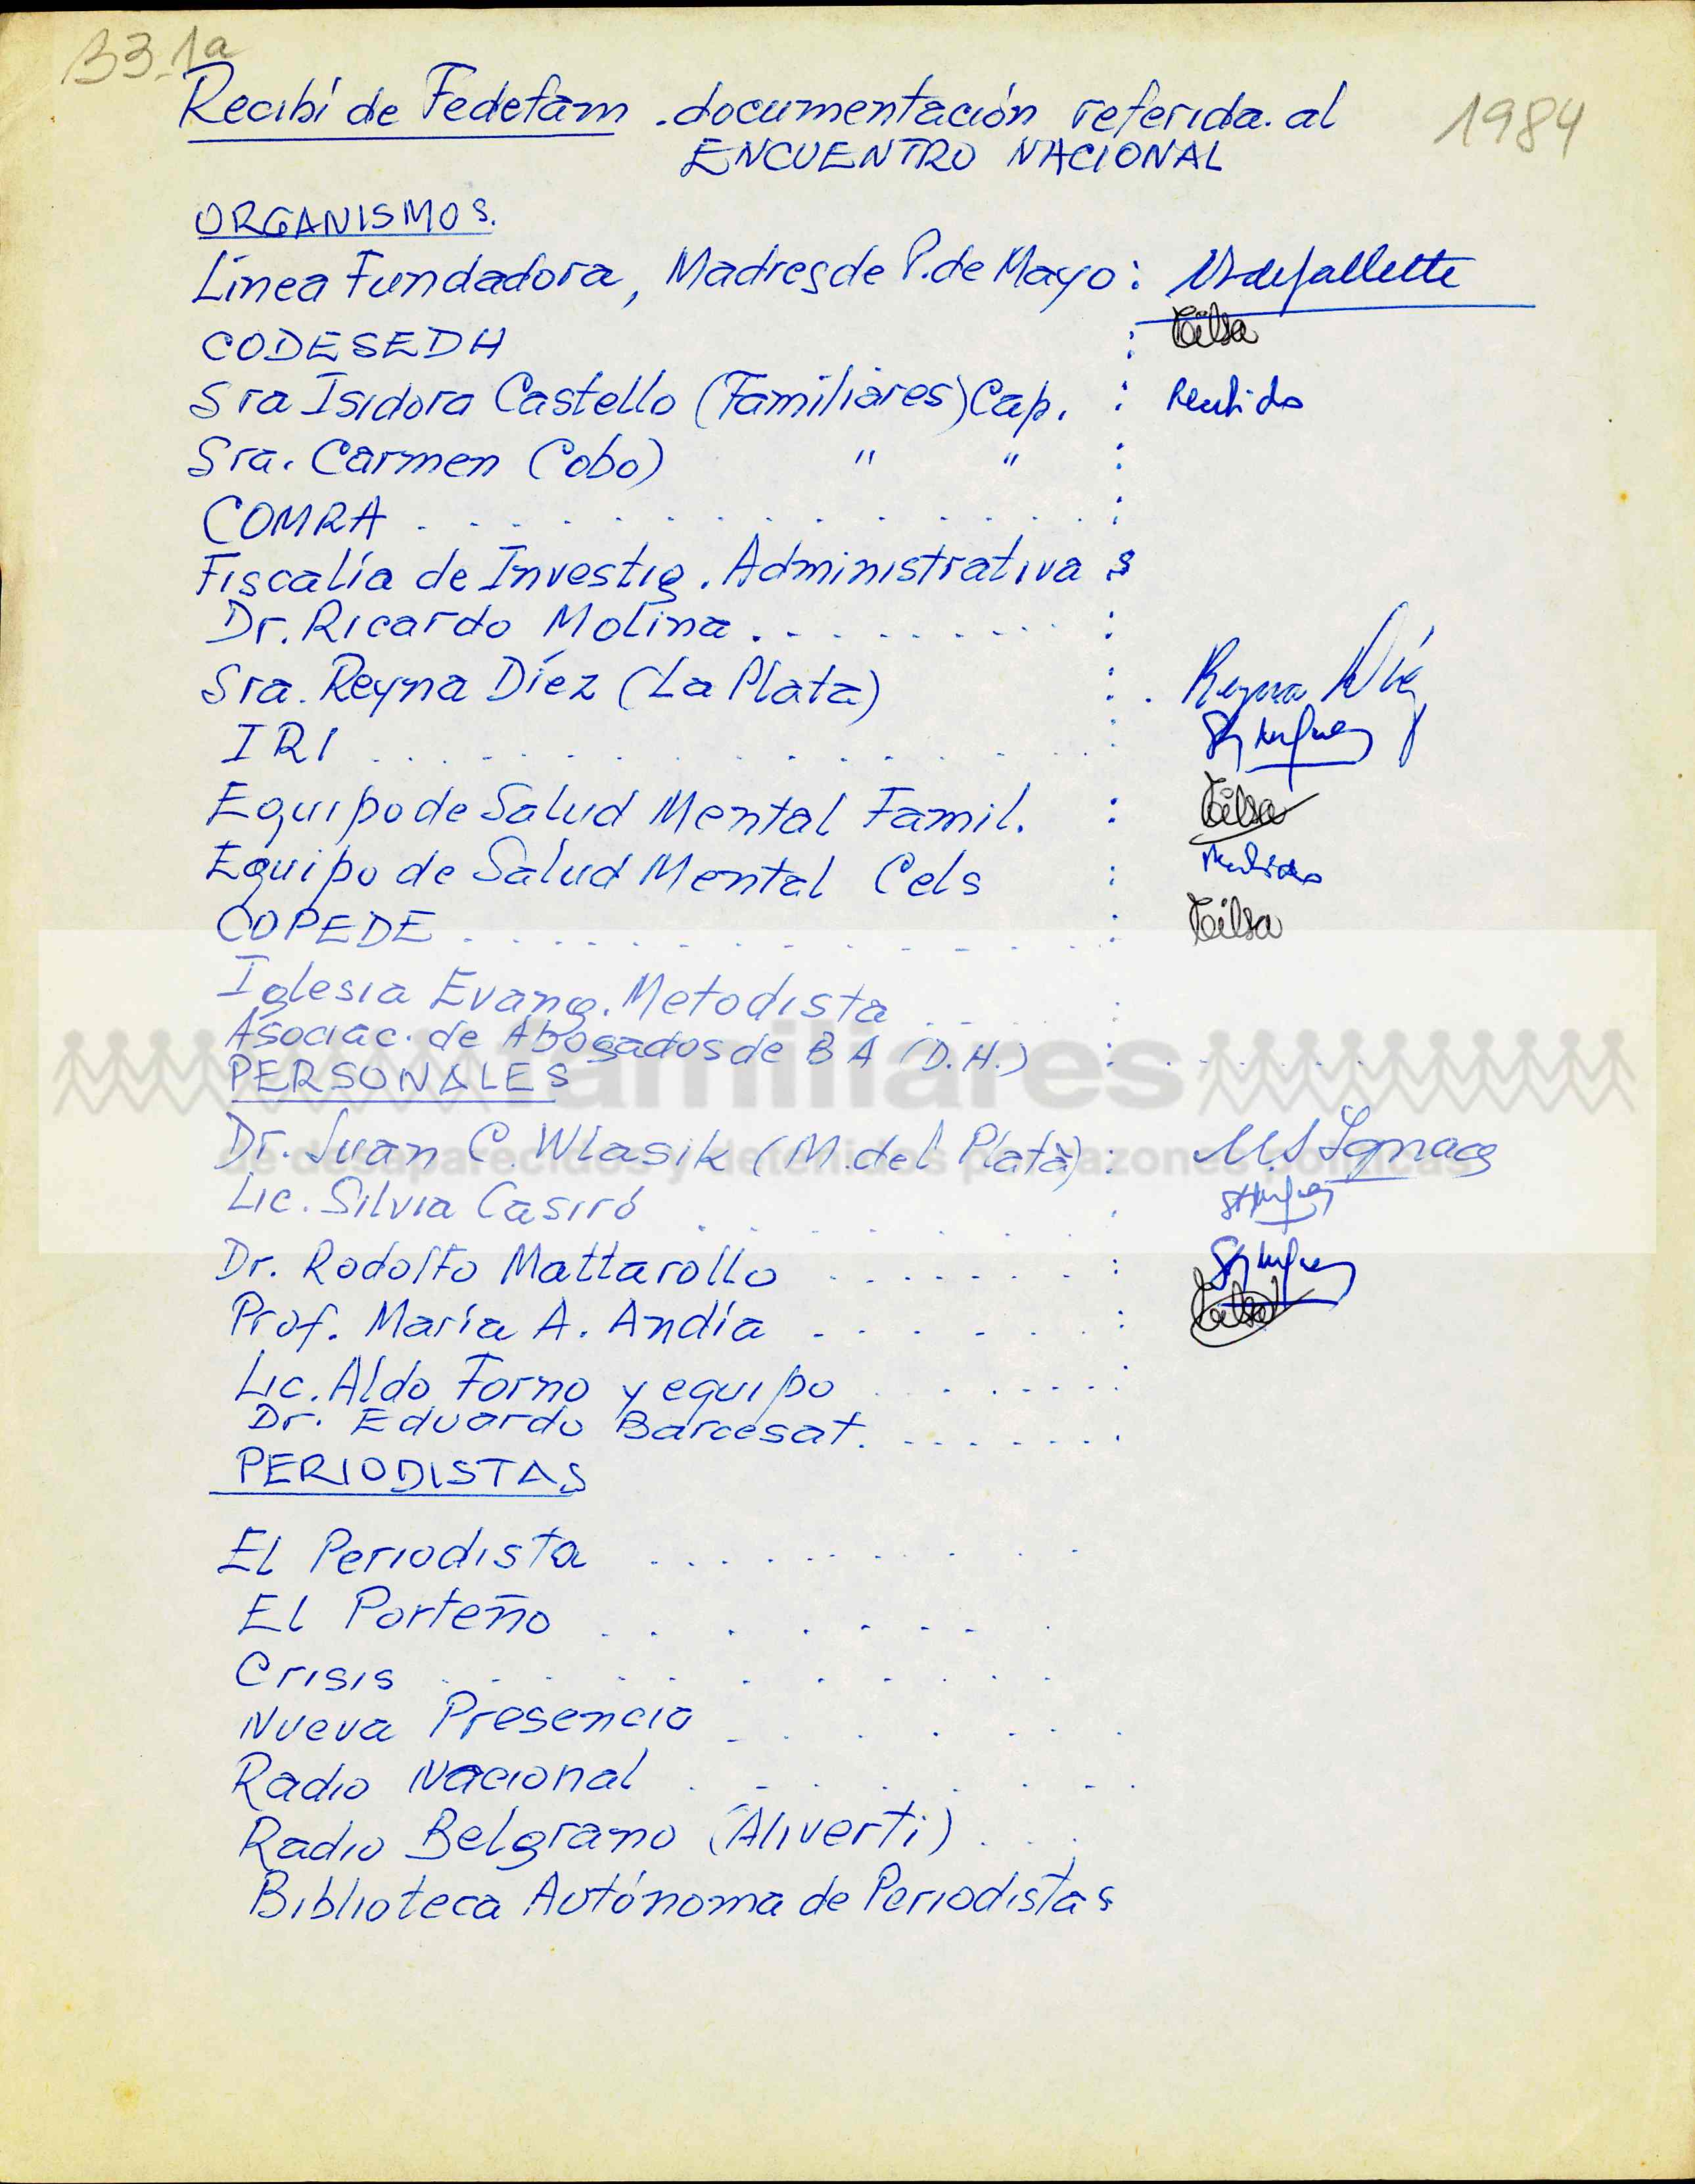 B3.1a
Recibí de Fedefam documentación referida al
1984
ENCUENTRO NACIONAL
ORGANISMOS.
Línea Fundadora, Madres de P. de Mayo:
CODESEDH : Tilsa
Sra Isidora Castello (Familiares) Cap. : Recibido
Sra. Carmen Cobo) " " :
COMRA . . . . . . . . . . . . . :
Fiscalía de Investig. Administrativas
Dr. Ricardo Molina . . . . . . . . :
Sra. Reyna Díez (La Plata) : . Reyna Díez
IRI . . . . . . . . . . . . :
Equipo de Salud Mental Famil. : Tilsa
Equipo de Salud Mental Cels : Recibido
COPEDE . . . . . . . . . . . . : Tilsa
Iglesia Evang. Metodista . . . . :
Asociac. de Abogados de BA (D.H.) : . . . . . .
familiares
PERSONALES
Dr. Juan C. Wlasik (M. del Plata) :
de desaparecidos y detenidos por razones políticas
Lic. Silvia Casiró . . . . . .
Dr. Rodolfo Mattarollo . . . . . . . :
Prof. María A. Andía . . . . . . : Tilsa
Lic. Aldo Forno y equipo . . . . . . :
Dr. Eduardo Barcesat. . . . . . . .
PERIODISTAS
El Periodista . . . . . . . . . . .
El Porteño . . . . . . . . .
Crisis . . . . . . . . . .
Nueva Presencia . . . . . .
Radio Nacional . . . . . . . .
Radio Belgrano (Aliverti) . . .
Biblioteca Autónoma de Periodistas